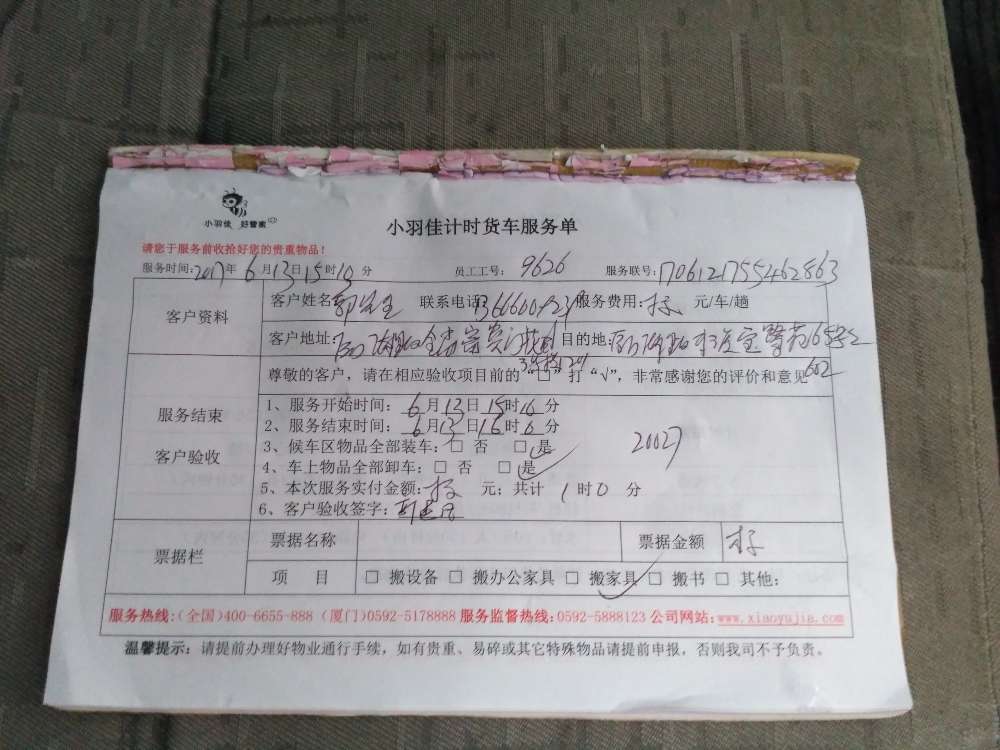 小羽佳 好管家
小羽佳计时货车服务单
请您于服务前收拾好您的贵重物品！
服务时间: 2017年 6月13日15时10分 员工工号: 9626 服务联号: 1706121755462863
客户资料
客户姓名 郭先生 联系电话 服务费用: 元/车/趟
客户地址: 目的地:
602
尊敬的客户，请在相应验收项目前的“□”打“√”，非常感谢您的评价和意见
服务结束
客户验收
1、服务开始时间: 6月13日15时16分
2、服务结束时间: 6月13日16时6分
3、候车区物品全部装车: □ 否 □ 是
4、车上物品全部卸车: □ 否 □ 是
20027
5、本次服务实付金额: 元；共计 1时0分
6、客户验收签字:
票据栏
票据名称 票据金额
项 目 □ 搬设备 □ 搬办公家具 □ 搬家具 □ 搬书 □ 其他:
服务热线:(全国)400-6655-888 (厦门)0592-5178888 服务监督热线:0592-5888123 公司网站:www.xiaoyujia.com
温馨提示: 请提前办理好物业通行手续，如有贵重、易碎或其它特殊物品请提前申报，否则我司不予负责。